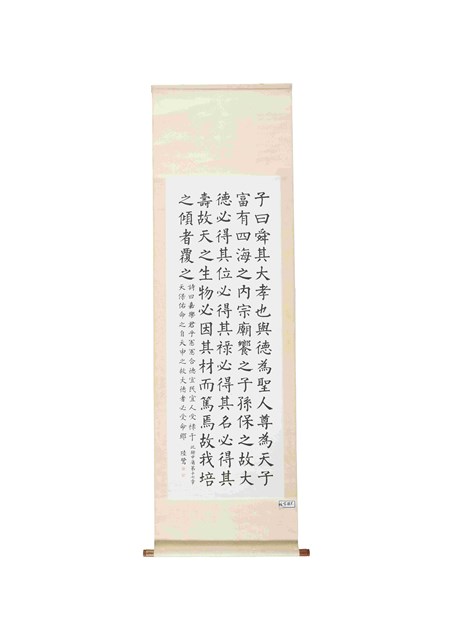 子曰舜其大孝也與德為聖人尊為天子
富有四海之內宗廟饗之子孫保之故大
德必得其位必得其祿必得其名必得其
壽故天之生物必因其材而篤焉故栽培
之傾者覆之
詩曰嘉樂君子憲憲令德宜民宜人受祿于
天保佑命之自天申之故大德者必受命